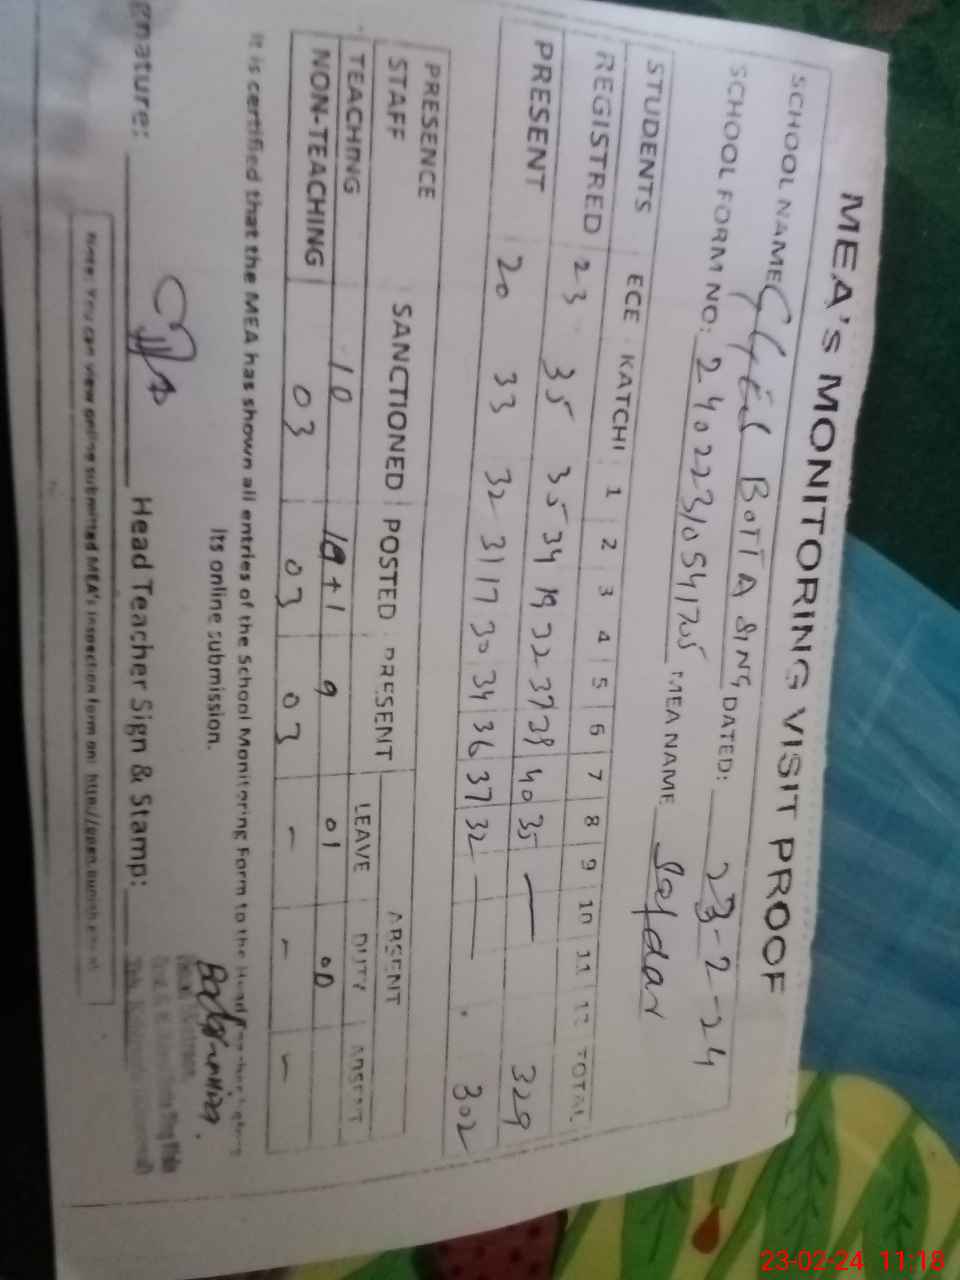 MEA's MONITORING VISIT PROOF
SCHOOL NAME BOTTA SING DATED: 23-2-24
SCHOOL FORM NO: MEA NAME Safdar
STUDENTS ECE KATCHI 1 2 3 4 5 6 7 8 9 10 11 12 TOTAL
REGISTRED 23 35 35 34 19 22 37 38 40 35 — 329
PRESENT 20 33 32 31 17 30 34 36 37 32 — 302
PRESENCE ABSENT
STAFF SANCTIONED POSTED PRESENT LEAVE DUTY ABSENT
TEACHING 10 +1 9 01 00
NON-TEACHING 03 03 03 - - -
It is certified that the MEA has shown all entries of the School Monitoring Form to the Head Teacher before
its online submission.
gnature: Head Teacher Sign & Stamp:
Note: You can view online submitted MEA's inspection form on:
23-02-24 11:18